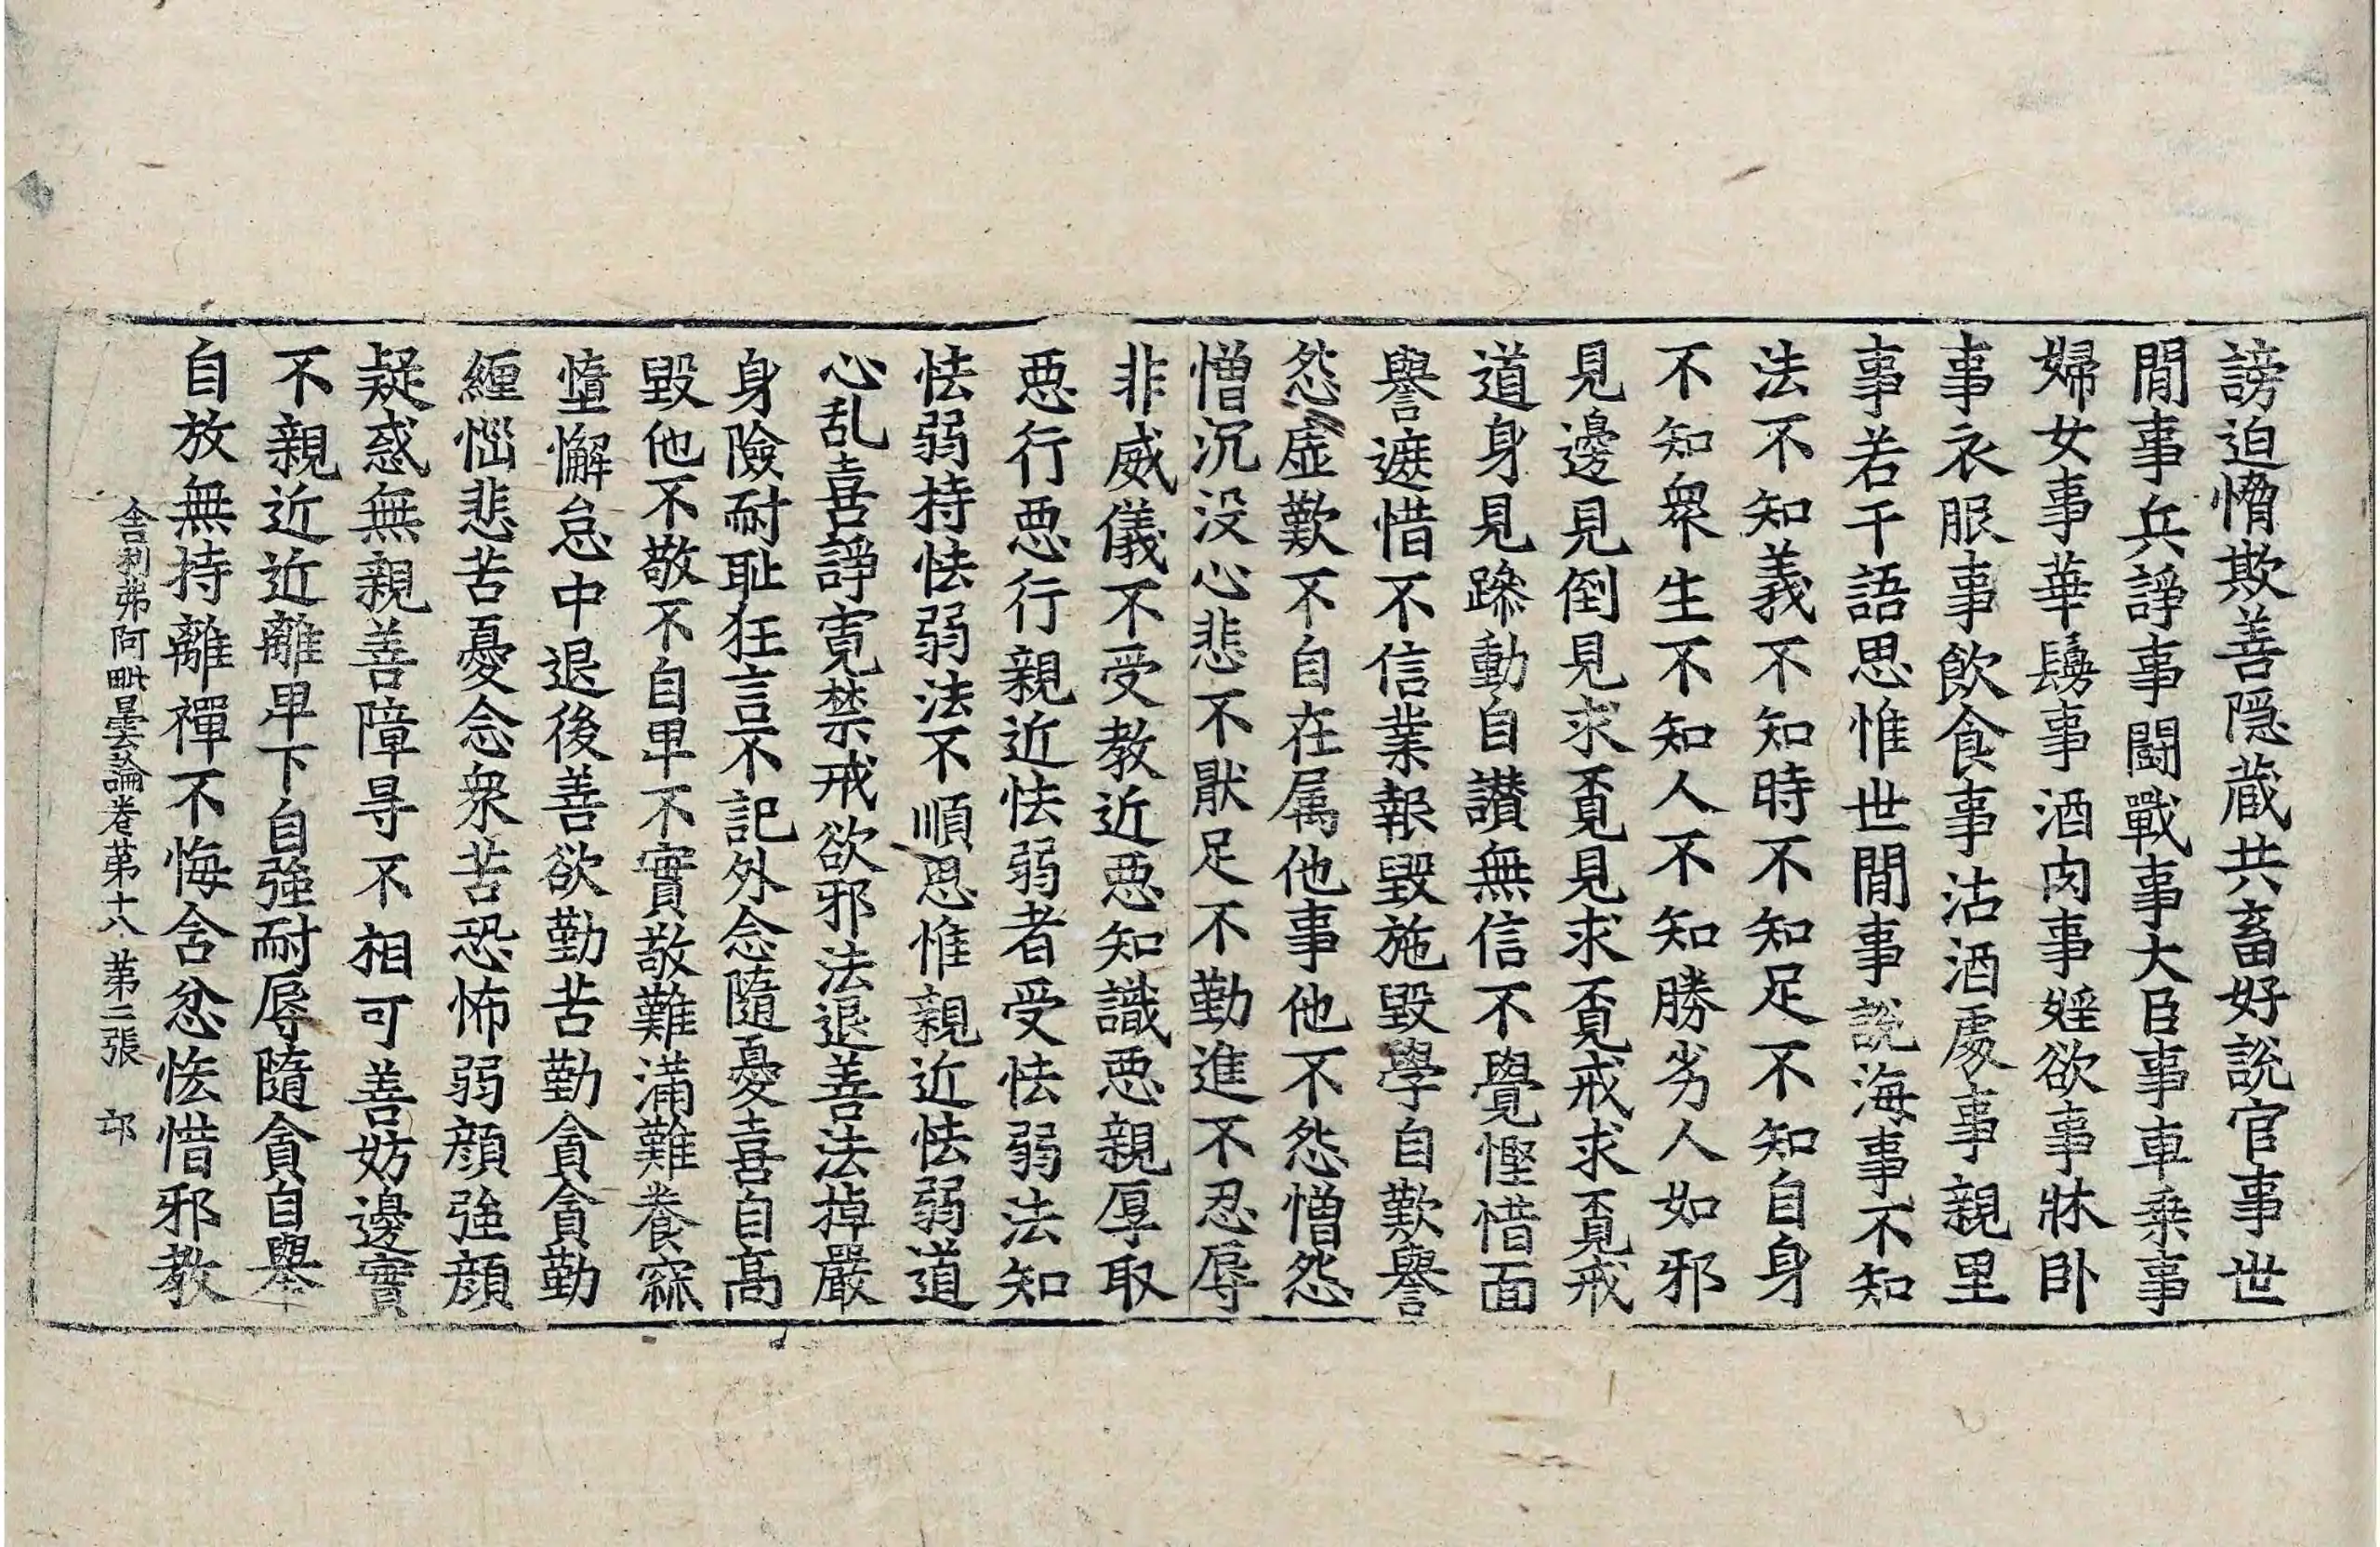 謗迫憯欺善隱蔵共畜好說官事世
閒事兵諍事鬪戰事大臣事車乗事
婦女事華鬘事酒肉事婬欲事牀卧
事衣服事飲食事沽酒處事親里
事若干語思惟世閒事說海事不知
法不知義不知時不知足不知自身
不知衆生不知人不知勝劣人如邪
見邊見倒見求覔見求覔戒求覔戒
道身見躁動自讃無信不覺慳惜面
譽遮惜不信業報毀施毀學自歎譽
怨虛歎不自在属他事他不怨憎怨
憎沉没心悲不猒足不勤進不忍辱
非威儀不受教近惡知識惡親厚取
惡行惡行親近怯弱者受怯弱法知
怯弱持怯弱法不順思惟親近怯弱道
心乱喜諍寛禁戒欲邪法退善法掉嚴
身險耐恥狂言不記外念隨憂喜自高
毀他不敬不自卑不實敬難滿難養寐
墯懈怠中退後善欲勤苦勤貪貪勤
纒惱悲苦憂念衆苦恐怖弱顔強顔
疑惑無親善障㝵不相可善妨邊實
不親近近離卑下自強耐辱隨貪自舉
自放無持離禪不悔舍忿恡惜邪教
舍利弗阿毗曇論卷第十八 第二張